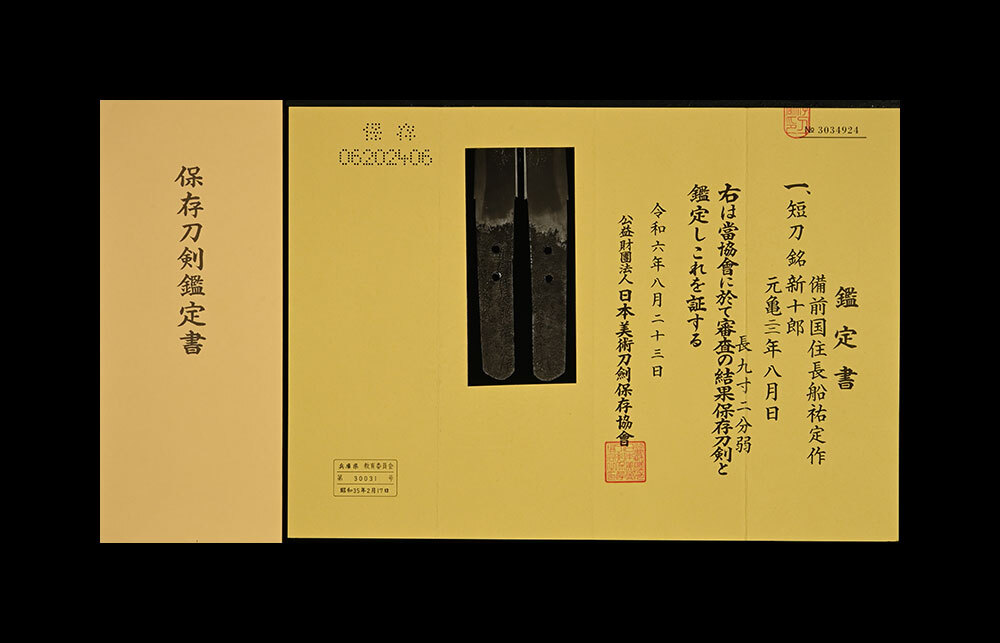 保存刀剣鑑定書
№ 3034924
鑑定書
一、短刀 銘 備前国住長船祐定作
新十郎
元亀二二年八月日
長 九寸二分弱
右は當協會に於て審査の結果保存刀剣と
鑑定しこれを証する
令和六年八月二十三日
公益財團法人 日本美術刀劍保存協會
保存
06202406
兵庫県 教育委員会
第 30031 号
昭和35年2月17日